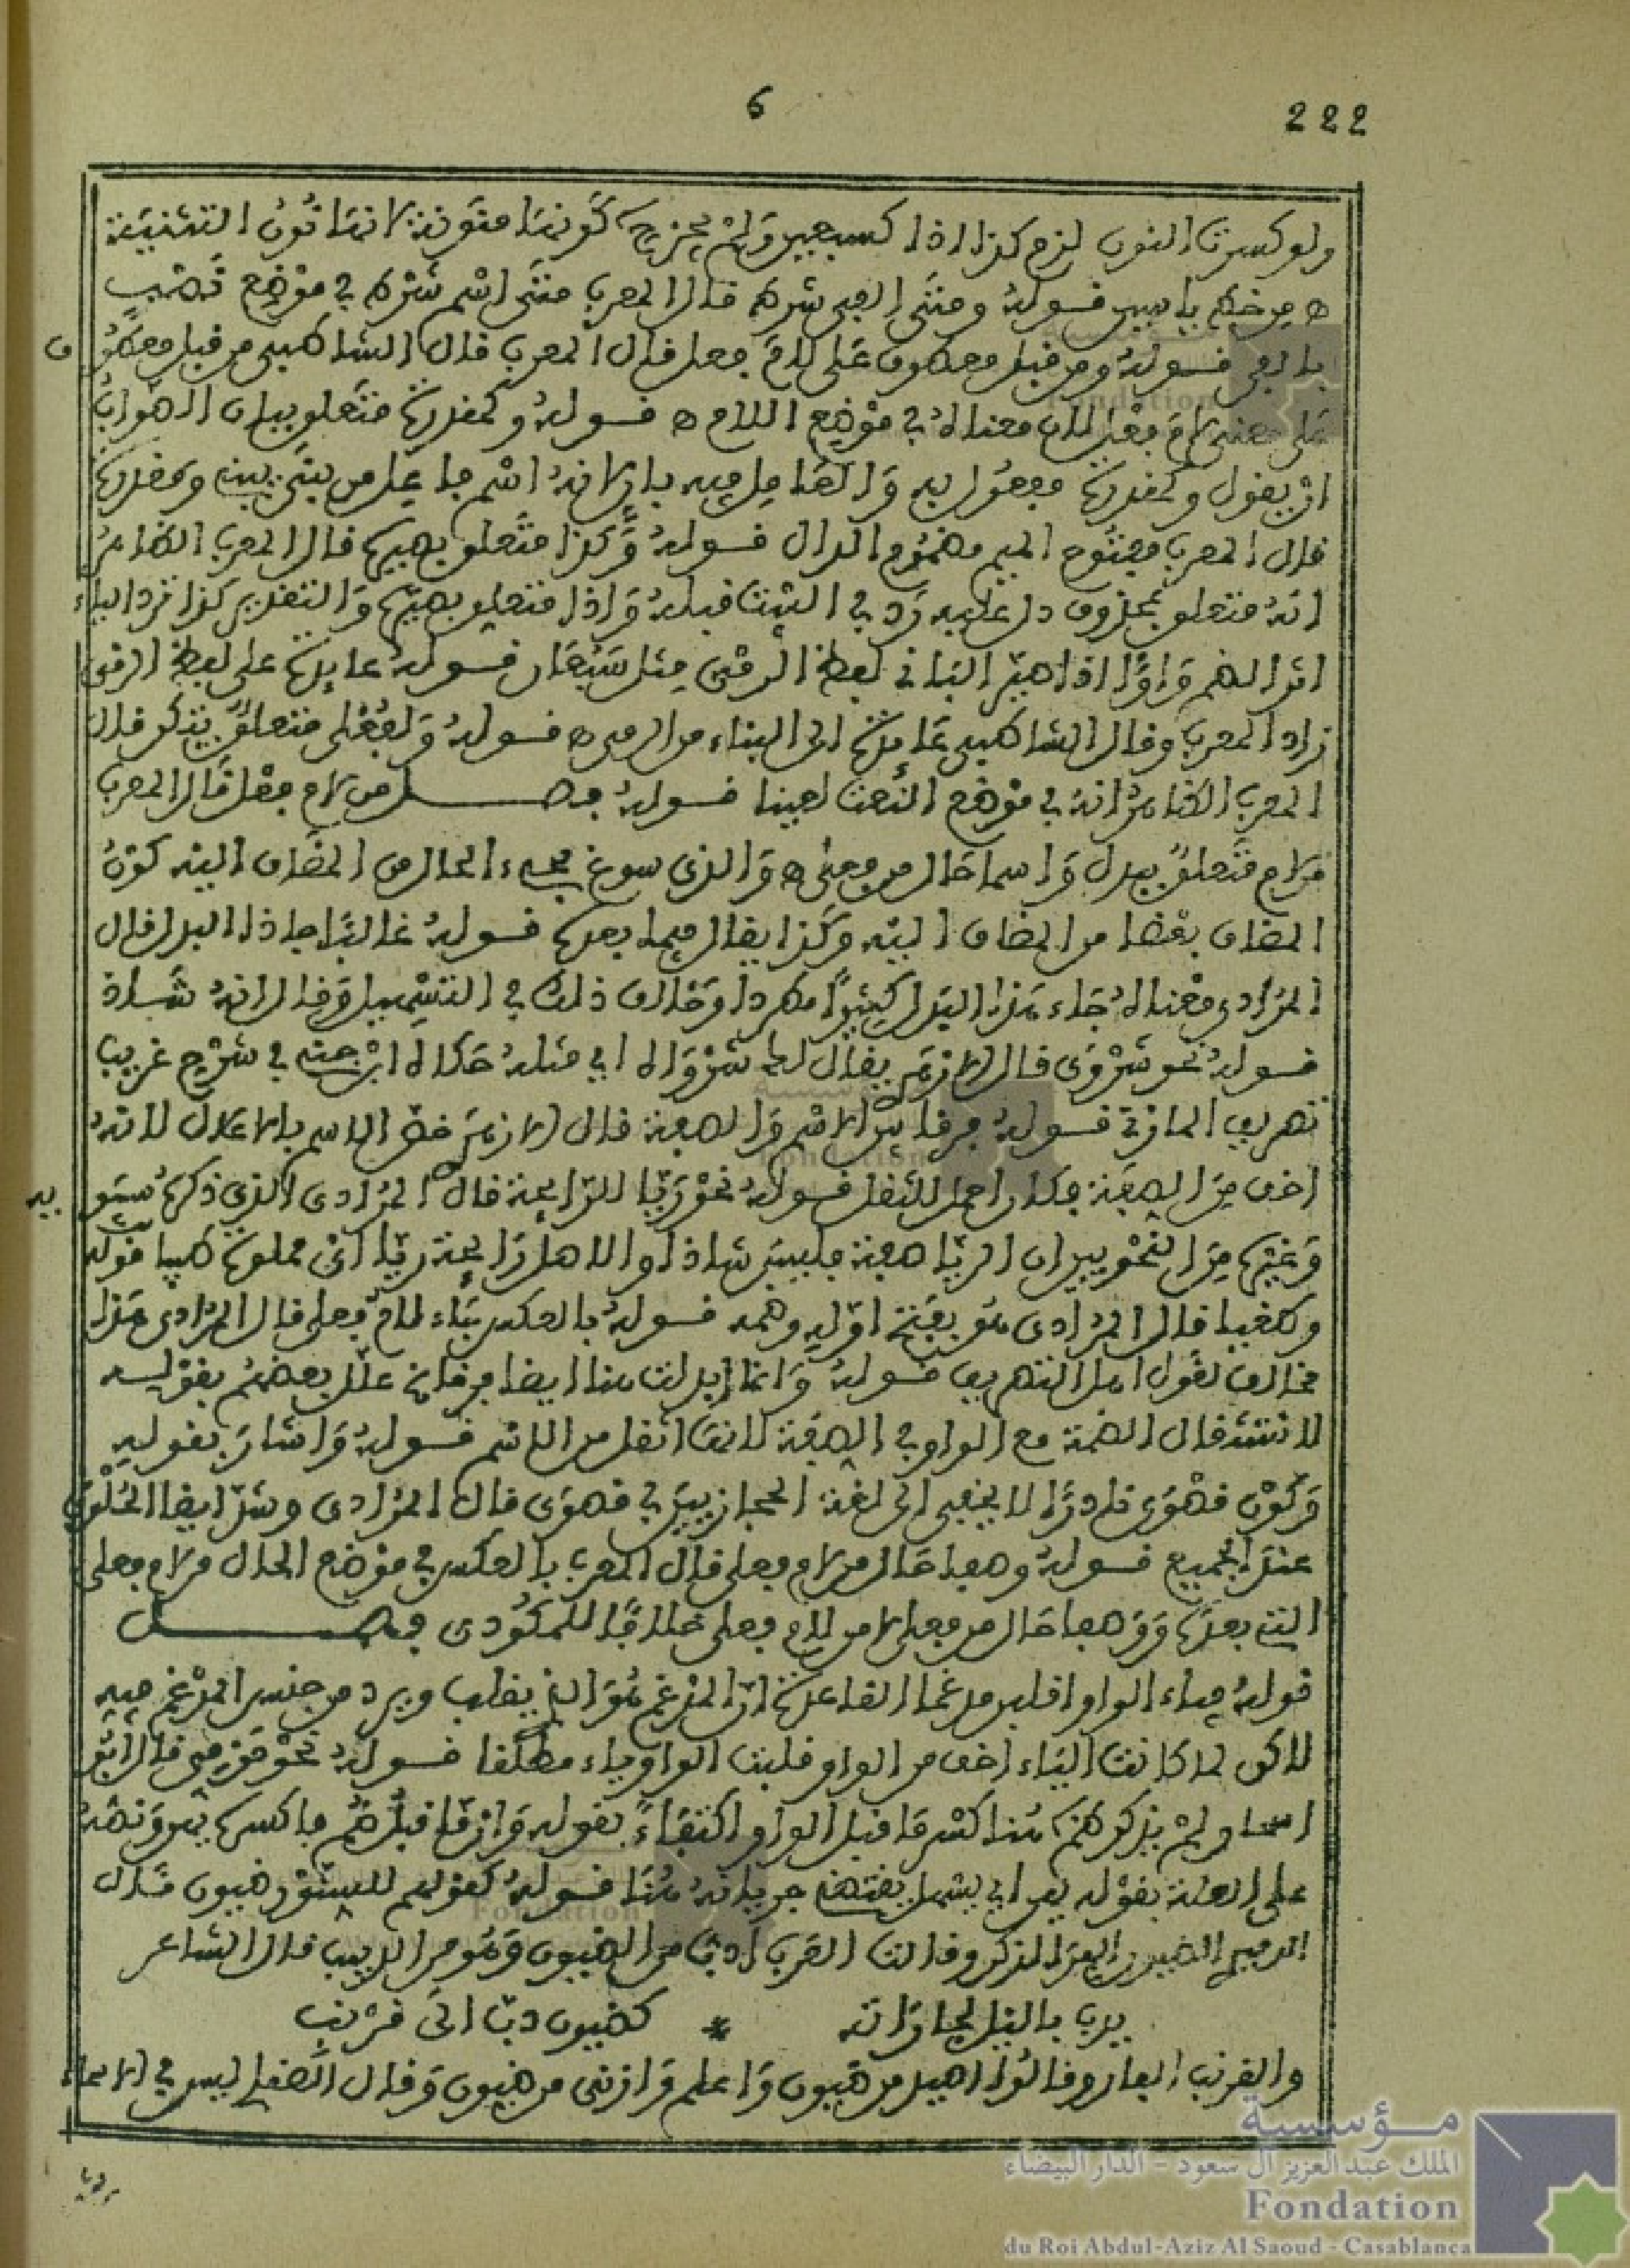 6
222
ولو كسرت النون لزم كذا اذا كسبعين ولم يحز كونها منونة لانها نون التثنية
ه من خط ياسين قوله ومثنى العي شرط قال المعرب مثنى اسم شرط في موضع نصب
بالعي قوله ومن قبل معطوف على لام فعل قال المعرب قال الشاطبي من قبل معطوف
على معنى لام فعل لان معناه في موضع اللام ه قوله وكمقدرة متعلق ببان الصواب
ان يقول وكمقدرة مفعول به والعامل فيه بان لانه اسم فاعل من بنى يبنى ومقدرة
قال المعرب مفتوح الميم مضموم الدال قوله وكذا متعلق بصيره قال المعرب الظاهر
انه متعلق بمحذوف دل عليه رد في البيت قبله واذا متعلق بصيره والتقدير كذا ترد الياء
اثر الضم واوا اذا صير الباني لفظ الرمي مثل سبعان قوله عايدة على لفظ الرمي
زاد المعرب وقال الشاطبي عايدة الى البناء من الرمي ه قوله ولفعلى متعلق بتذكر قال
المعرب الظاهر انه في موضع النعت لعينا قوله فصل من لام فعلى قال المعرب
من لام متعلق ببدل واسما حال من فعلى ه والذي سوغ مجيء الحال من المضاف اليه كون
المضاف بعضا من المضاف اليه وكذا يقال فيما بعده قوله غالبا جا ذا البدل قال
المرادي معناه جاء هذا البدل كثيرا مطردا وخالف ذلك في التسهيل وقال انه شاذ
قوله نحو شروى قال الازهر يقال لك شرواه اي مثله حكاه ابن جني في شرح غريب
تصريف المازني قوله فرقا بين الاسم والصفة قال الازهر خص الاسم بالاعلال لانه
اخف من الصفة فكان احمل للثقل قوله نحو ريا للرائحة قال المرادي الذي ذكره سيبويه
وغيره من النحويين ان الريا صفة فليس شاذا والاصل رائحة ريا اي مملوة طيبا قوله
وكغيا قال المرادي هو بفتح اوله وضمه قوله بالعكس جاء لام فعلى قال المرادي هذا
مخالف لقول اهل التصريف قوله وانما ابدلت هنا ايضا فرقا علل بعضهم بقوله
لاستثقال الضمة مع الواو في الصفة لانها اثقل من الاسم قوله واشار بقوله
وكون قصوى نادرا لا يخفى الى لغة الحجازيين في قصوى قال المرادي وشذ ايضا الحلوى
عند الجميع قوله وصفا حال من لام فعلى قال المعرب بالعكس في موضع الحال من لام فعلى
التي بعده ووصفا حال من فعلى لا من لام فعلى خلافا للمكودي فصل
قوله فياء الواو اقلبن مدغما القاعدة ان المدغم هو الذي يقلب ويرد من جنس المدغم فيه
لاكن لما كانت الياء اخف من الواو قلبت الواو ياء مطلقا قوله نحو مرمي قال ابو
اسحاق ولم يذكر هنا كسر ما قبل الواو اكتفاء بقوله وان ما قبل ضم فاكسره يهن ونصه
على العلة بقوله يهن اي يسهل يقتضي جريانه هنا قوله كقولهم للسنور ضيون قال
الدميري الضيون الهر الذكر وقالت العرب ادب من الضيون وهو من الدبيب قال الشاعر
يدب بالليل لجاراته * كضيون دب الى قرنب
والقرنب الفار وقالوا اصيد من ضيون واعلم وازنى من ضيون وقال الصقلي ليس في الاسماء
مؤسسة
الملك عبد العزيز آل سعود - الدار البيضاء
Fondation
du Roi Abdul-Aziz Al Saoud - Casablanca